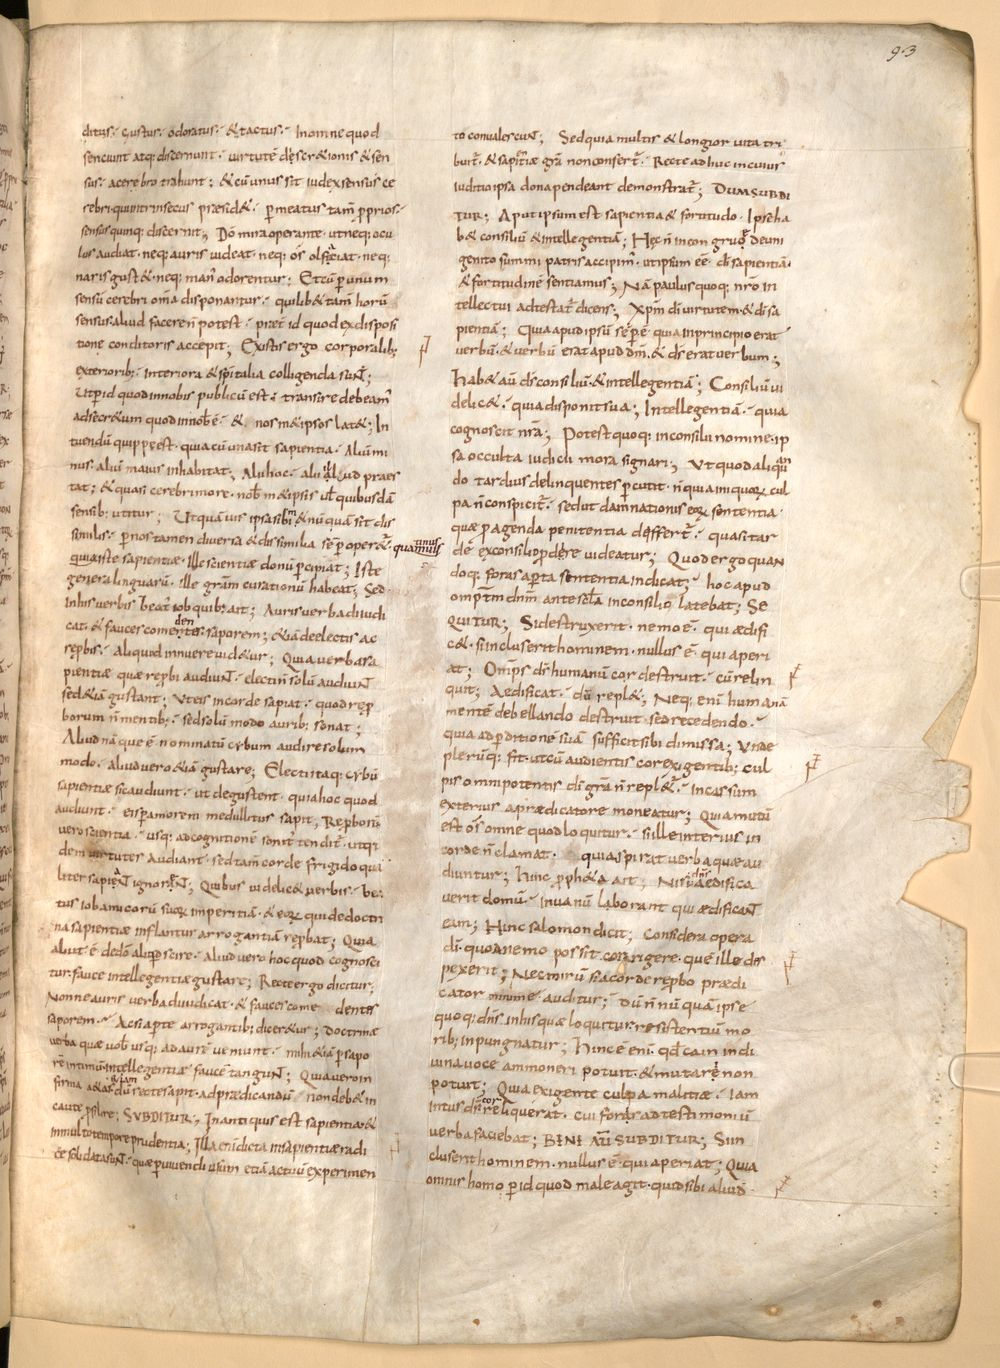 93
ditus · gustus · odoratus · & tactus · In omne quod
senciunt atq; discernunt · virtutē discr&ionis & sen
sus · a cerebro trahunt ; & cū unus sit iudex sensus ce
rebri · qui intrinsecus præsid& · p meatus tam̄ pprios
sensus quinq; discernit ; Dō mira operante · ut neq; ocu
lus audiat · neq; auris videat · neq; os olfaciat · neq;
naris gust& · neq; man; odorentur ; Et cū p unum
sensū cerebri om̄a disponantur · quilib& tam̄ horū
sensus aliud facere n̄ potest · præt id quod ex disposi
tione conditoris accepit ; Ex istis ergo corporalib;
exteriorib; · interiora & spitalia colligenda suɴ̄ ;
Ut p id quod in nobis publicū est · transire debeam̄
ad secr&um quod in nob̄ ē · & nos m& ipsos lat& ; In
tuendū quippe est · quia cū una sit sapientia · Aliū mi
nus · aliū maius inhabitat ; Alii hoc · alii illud præs
tat ; & quasi cerebri more · nob̄ m& ipsis ul̄ quibusdā
sensib; utitur ; Ut quāvis ipsa sibim& nūquā sit dis
similis · p nos tamen diversa & dissimilia sēp oper& ·
quamuis
unus
qua iste sapientiæ · ille scientiæ donū pcipiat ; Iste
genera linguarū · ille grām curationū habeat ; Sed
in his verbis beat; iob quib; ait ; Auris verba diiudi
cat · & fauces comedentes saporem ; &iā de electis ac
repbis · aliquid innuere vid&ur ; Quia verba sa
pientiæ quæ repbi audiuɴ̄ · electi n̄ solū audiuɴ̄
sed &iā gustant ; Ut eis in corde sapiat · quod rep
borum n̄ mentib; · sed solū modo aurib; sonat ;
Aliud nāque ē · nominatū cybum audire solum
modo · aliud vero &iā gustare ; Electi itaq; cybū
sapientiæ sic audiunt · ut degustent · quia hoc quod
audiunt · eis p amorem medullitus sapit ; Reproborū
vero scientia · usq; ad cognitionē sonit; tendit · ut qi
dem virtutes audiant · sed tam̄ corde frigido qua
liter sapiaɴ̄ ignoreɴ̄ ; Quibus videlic& verbis · be
tus iob amicorū suoꝝ imperitiā · & eoꝝ qui de doctri
na sapientiæ inflantur arrogantiā repbat ; Quia
aliut ē de dō aliqd scire · Aliud vero hoc quod cognosci
tur · fauce intellegentiæ gustare ; Recte ergo dicitur ;
Nonne auris verba diiudicat · & fauces come dentis
saporem · Ac si aparte arrogantib; dicer&ur ; Doctrinæ
verba quæ vob̄ usq; ad aurē veniunt · mihi &iā p sapo
rē intimū · intellegentiæ faucē tanguɴ̄ ; Quia vero in
firma
dū recte sapit · ad prædicandū non deb& in
caute psilire ; SUBDITUR ; In antiquis est sapientia &
in multo tempore prudentia ; Illa eni dicta in sapientiæ radi
ce solidata suɴ̄ · quæ p vivendi usum etiā actuū experimen
to convalescuɴ̄ ; Sed quia multis & longior vita tri
buit̄ · & sapītiæ grā non consert̄ · Recte adhuc in cuius
iuditio ipsa dona pendeant demonstrat̄ ; DUM SUBDI
TUR ; Aput ipsum est sapientia & fortitudo · Ipse ha
b& consiliū & intellegentiā ; Hęc n̄ incongruę de uni
genito summi patris accipim; · ut ipsum eē dī sapientiā ·
& fortitudinē sentiamus ; Nā paulus quoq; nrō in
tellectui adtestat̄ dicens ; Xpm̄ dī virtutem & dī sa
pientiā ; Quia apud ipsū sēp ē quia in principio erat
verbū · & verbū erat apud dm̄ · & ds̄ erat verbum ;
Hab& aū ds̄ consiliū · & intellegentiā ; Consiliū vi
delic& · quia disponit sua ; Intellegentiā · quia
cognoscit nrā ; Potest quoq; in consilii nomine · ip
sa occulta iudicii mora signari ; Ut quod aliquan
do tardius delinquentes pcutit · n̄ quia iniquoꝝ cul
pa n̄ conspicit̄ · sed ut damnationis eoꝝ sententia
quæ p agenda penitentia differt̄ · quasi tar
de ex consilio pdere videatur ; Quod ergo quan
doq; foras aperta sententia indicat ; hoc apud
omptm̄ dnm̄ ante scl̄a in consilio latebat ; SE
QUITUR ; Si destruxerit · nemo ē · qui ædifi
c& · si incluserit hominem · nullus ē · qui aperi
at ; Omps̄ ds̄ humanū cor destruit · cū relin
quit ; Aedificat · dū repl& ; Neq; enī humanā
mentē debellando destruit · sed recedendo ·
quia ad pditionē suā sufficit sibi dimissa ; Unde
plerūq; fit · ut cū audientis cor exigentib; cul
pis omnipotentis dī grā n̄ repl&̄ · incassum
exterius a prædicatore moneatur ; Quia mutū
est os omne quod loquitur · si ille interius in
corde n̄ clamat · qui aspirat verba quæ au
diuntur ; Hinc proph&a ait ; Nisi dn̄s ædifica
verit domū · in vanū laborant qui ædificaɴ̄
eam ; Hinc salomon dicit ; Considera opera
dī · quod nemo possit corrigere · quē ille dis
pexerit ; Nec mirū si a corde repbo prædi
cator minime auditur ; dū nōnūquā ipse
quoq; dn̄s in his quæ loquitur · resistentiū mo
rib; inpungnatur ; Hinc ē enī · qd̄ cain in di
vina voce ammoneri potuit · & mutari non
potuit ; Quia exigente culpa malitiæ · Iam
intus ds̄ cor reliquerat · cui foris ad testimoniū
verba faciebat ; BENE AŪ SUBDITUR ; Si in
cluserit hominem · nullus ē · qui aperiat ; Quia
omnis homo p id quod male agit · quid sibi aliud